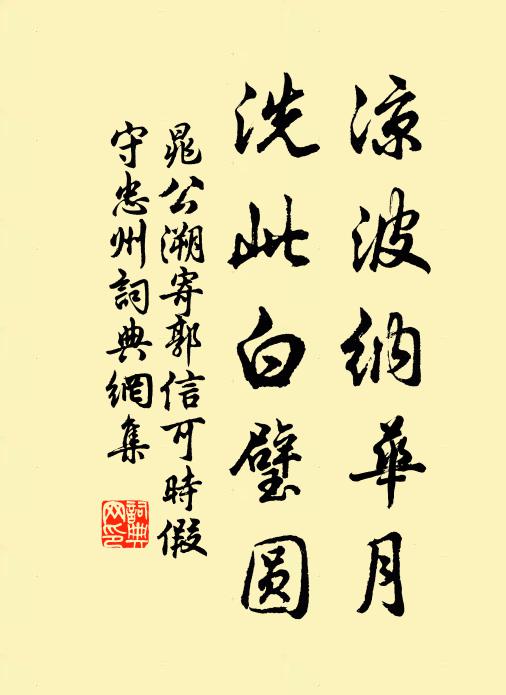 凉波纳華月
洗此白璧圆
晁公溯寄郭信可時假
守忠州詞典網集
詞典
网印